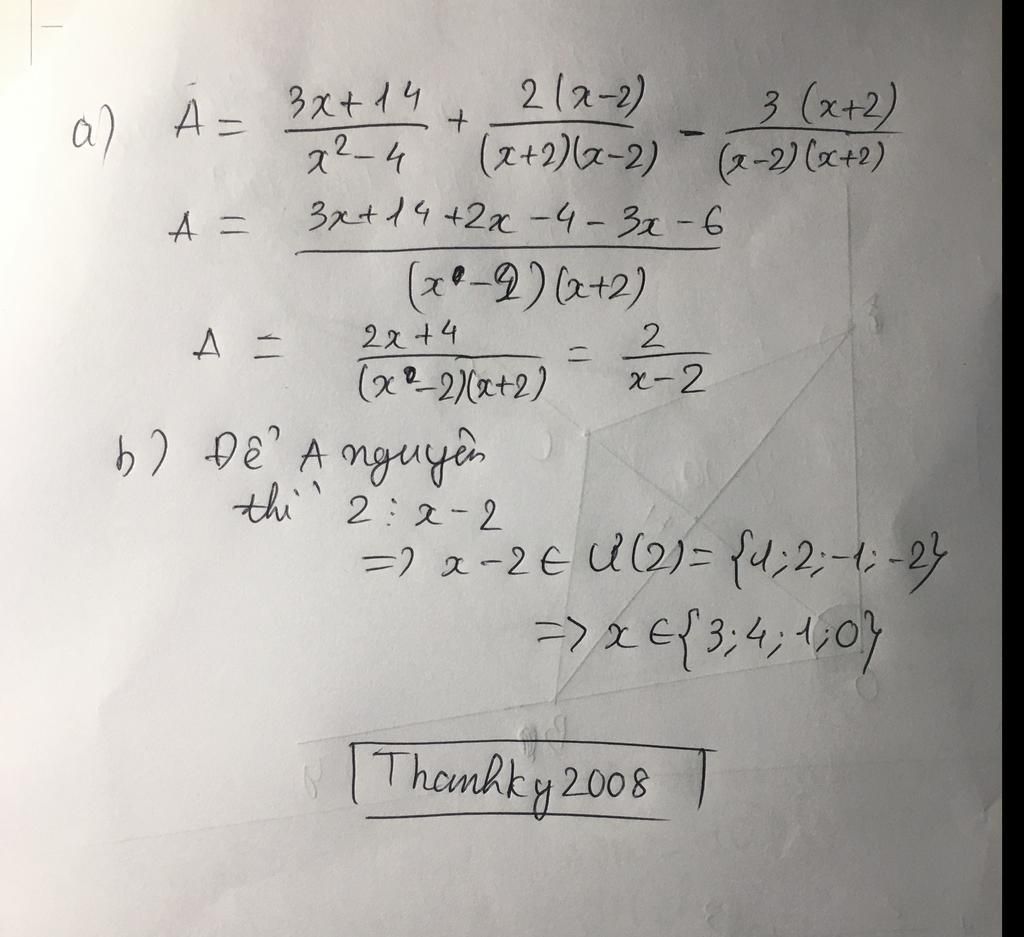 a) A = \frac{3x+14}{x²-4} + \frac{2(x-2)}{(x+2)(x-2)} - \frac{3(x+2)}{(x-2)(x+2)}
A = \frac{3x+14+2x-4-3x-6}{(x-2)(x+2)}
A = \frac{2x+4}{(x-2)(x+2)} = \frac{2}{x-2}
b) Để A nguyên
thì 2 ⋮ x-2
=> x-2 ∈ Ư(2) = {1;2;-1;-2}
=> x ∈ {3;4;1;0}
Thanhky2008